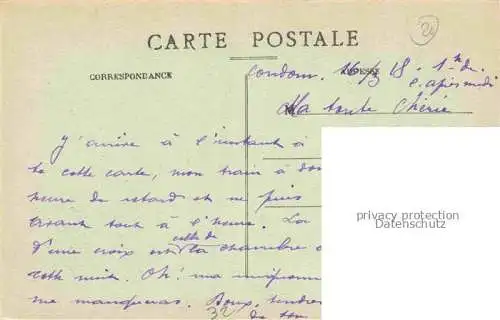 24
CARTE POSTALE
CORRESPONDANCE
ADRESSE
Condom. 16/3 18. 1h de
l'après midi
Ma toute Chérie
J'arrive à l'instant à
te cette carte, mon train à
heure de retard et ne puis
tout à l'heure. La
D'une croix est celle de la chambre
cette nuit. Oh! ma
me manqueras. Doux, tendres
de ton
32
privacy protection
www.oldthing.de